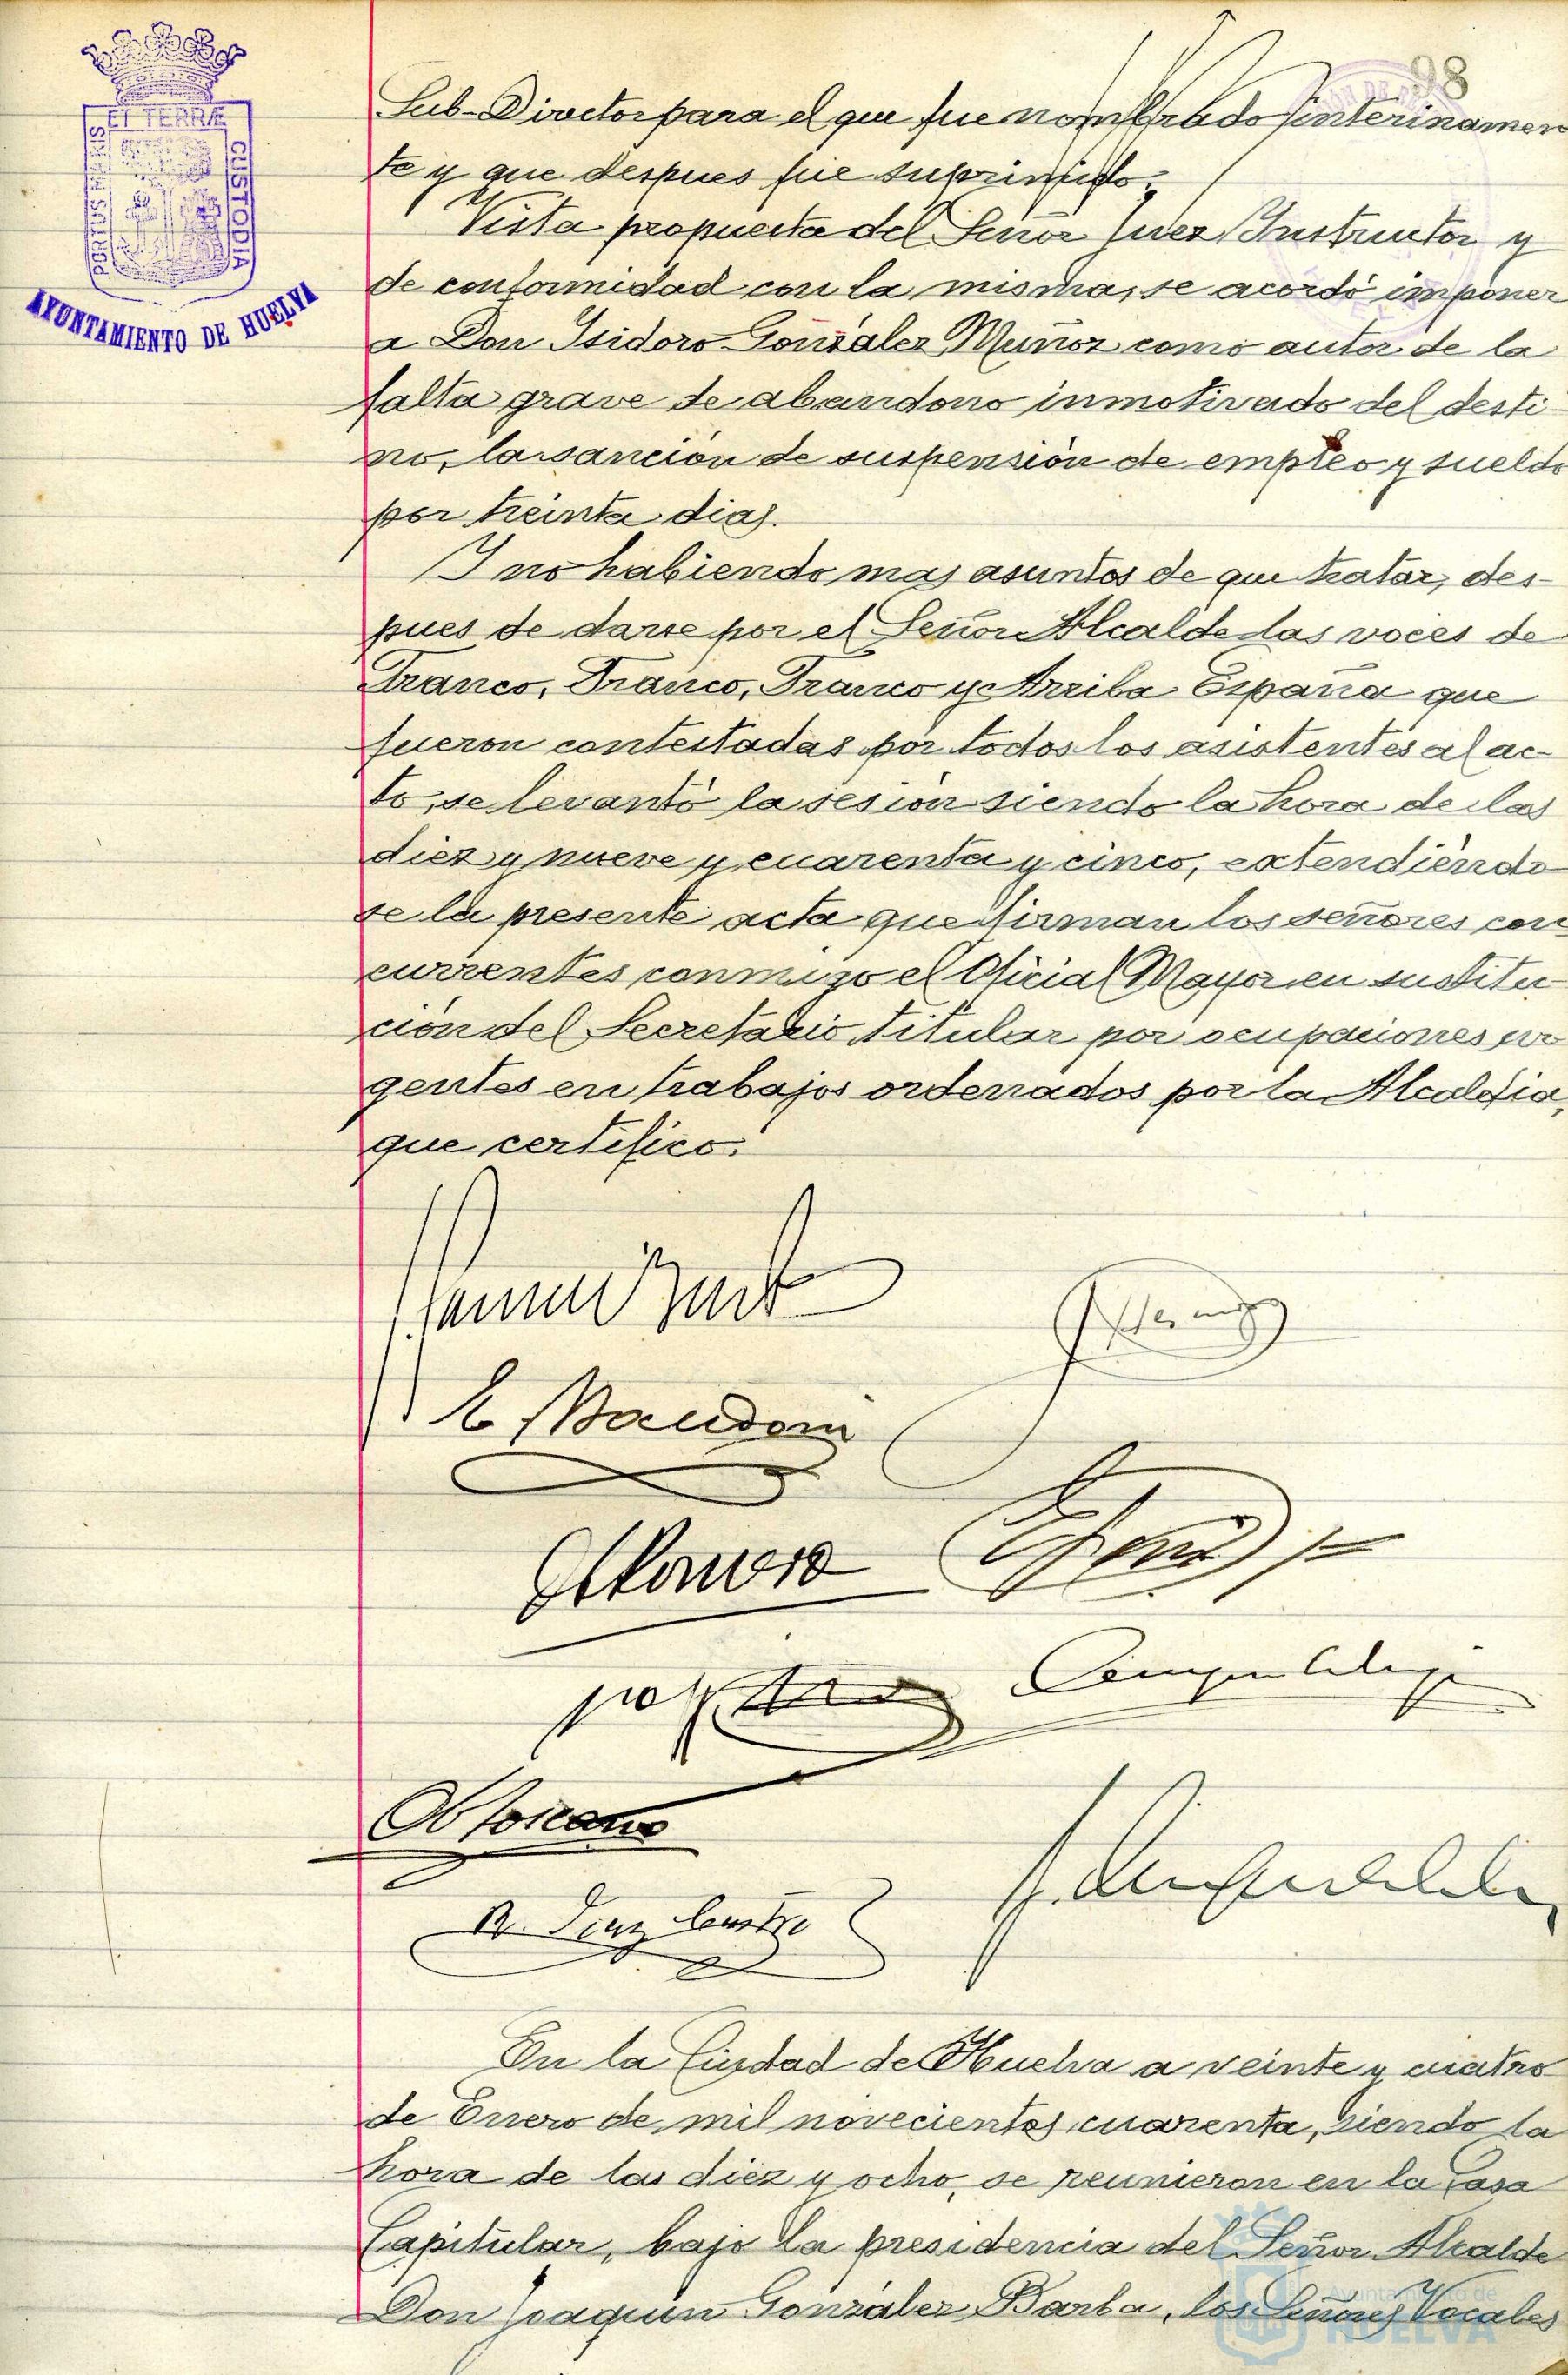 98
PORTUS MARIS
ET TERRÆ
CUSTODIA
AYUNTAMIENTO DE HUELVA
Sub-Director para el que fue nombrado interinamen
te y que despues fue suprimido.
Vista propuesta del Señor Juez Instructor y
de conformidad con la misma, se acordó imponer
a Don Isidoro González Muñoz como autor de la
falta grave de abandono inmotivado del desti-
no, la sanción de suspensión de empleo y sueldo
por treinta dias.
Y no habiendo mas asuntos de que tratar, des-
pues de darse por el Señor Alcalde las voces de
Franco, Franco, Franco y Arriba España que
fueron contestadas por todos los asistentes al ac-
to, se levantó la sesión siendo la hora de las
diez y nueve y cuarenta y cinco, extendiéndo
se la presente acta que firman los señores con
currentes conmigo el Oficial Mayor en sustitu
ción del Secretario titular por ocupaciones ur
gentes en trabajos ordenados por la Alcaldia,
que certifico.
En la Ciudad de Huelva a veinte y cuatro
de Enero de mil novecientos cuarenta, siendo la
hora de las diez y ocho, se reunieron en la Casa
Capitular, bajo la presidencia del Señor Alcalde
Don Joaquin González Barba, los Señores Vocales
Ayuntamiento de
HUELVA